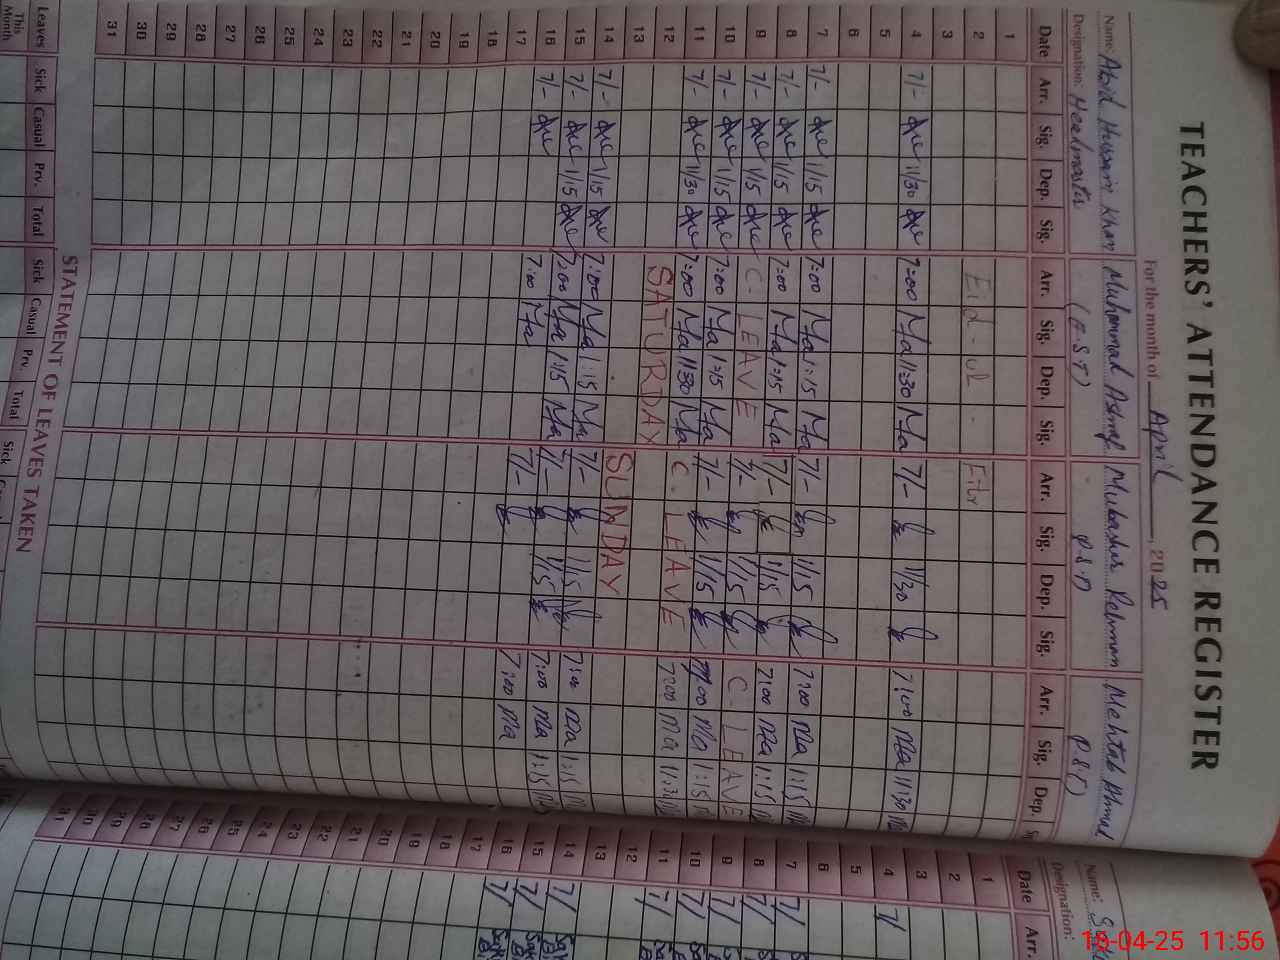 TEACHERS' ATTENDANCE REGISTER
For the month of April, 2025
Name: Abid Hussain Khan Muhammad Ashraf Mubashir Rehman Mehtab Ahmed
Designation: Headmaster (E.S.T) P.S.T P.S.T)
Date Arr. Sig. Dep. Sig. Arr. Sig. Dep. Sig. Arr. Sig. Dep. Sig. Arr. Sig. Dep.
1
2 Eid-ul. Fitr
3
4 7/- 11/30 7:00 Ma 11:30 Ma 7/- 11/30 7:00 Ma 11:30
5
6
7 7/- 1/15 7:00 Ma 1:15 Ma 7/- 1/15 7:00 Ma 1:15
8 7/- 1/15 7:00 Ma 1:15 Ma 7/- 1/15 7:00 Ma 1:15
9 7/- 1/15 C. LEAVE 7/- 1/15 C. LEAVE
10 7/- 1/15 7:00 Ma 1:15 Ma 7/- 1/15 7:00 Ma 1:15
11 7/- 11/30 7:00 Ma 11:30 Ma C. LEAVE 7:00 Ma 11:3
12 SATURDAY
13 SUNDAY
14 7/- 1/15 7:00 Ma 1:15 Ma 7/- 1/15 7:00 Ma 1:15
15 7/- 1/15 7:00 Ma 1:15 Ma 7/- 1/15 7:00 Ma 1:15
16 7/- 7:00 Ma 7/- 7:00 Ma
17
18
19
20
21
22
23
24
25
26
27
28
29
30
31
STATEMENT OF LEAVES TAKEN
Leaves Sick Casual Prv. Total Sick Casual Prv. Total Sick
This Month
Name:
Designation:
Date Arr.
1
2
3
4 7/
5
6
7 7/
8 7/
9 7/
10 7/
11 7/
12
13
14 7/
15 7/
16 7/
17
18
19
20
21
22
23
24
25
26
27
28
29
30
31
16-04-25 11:56